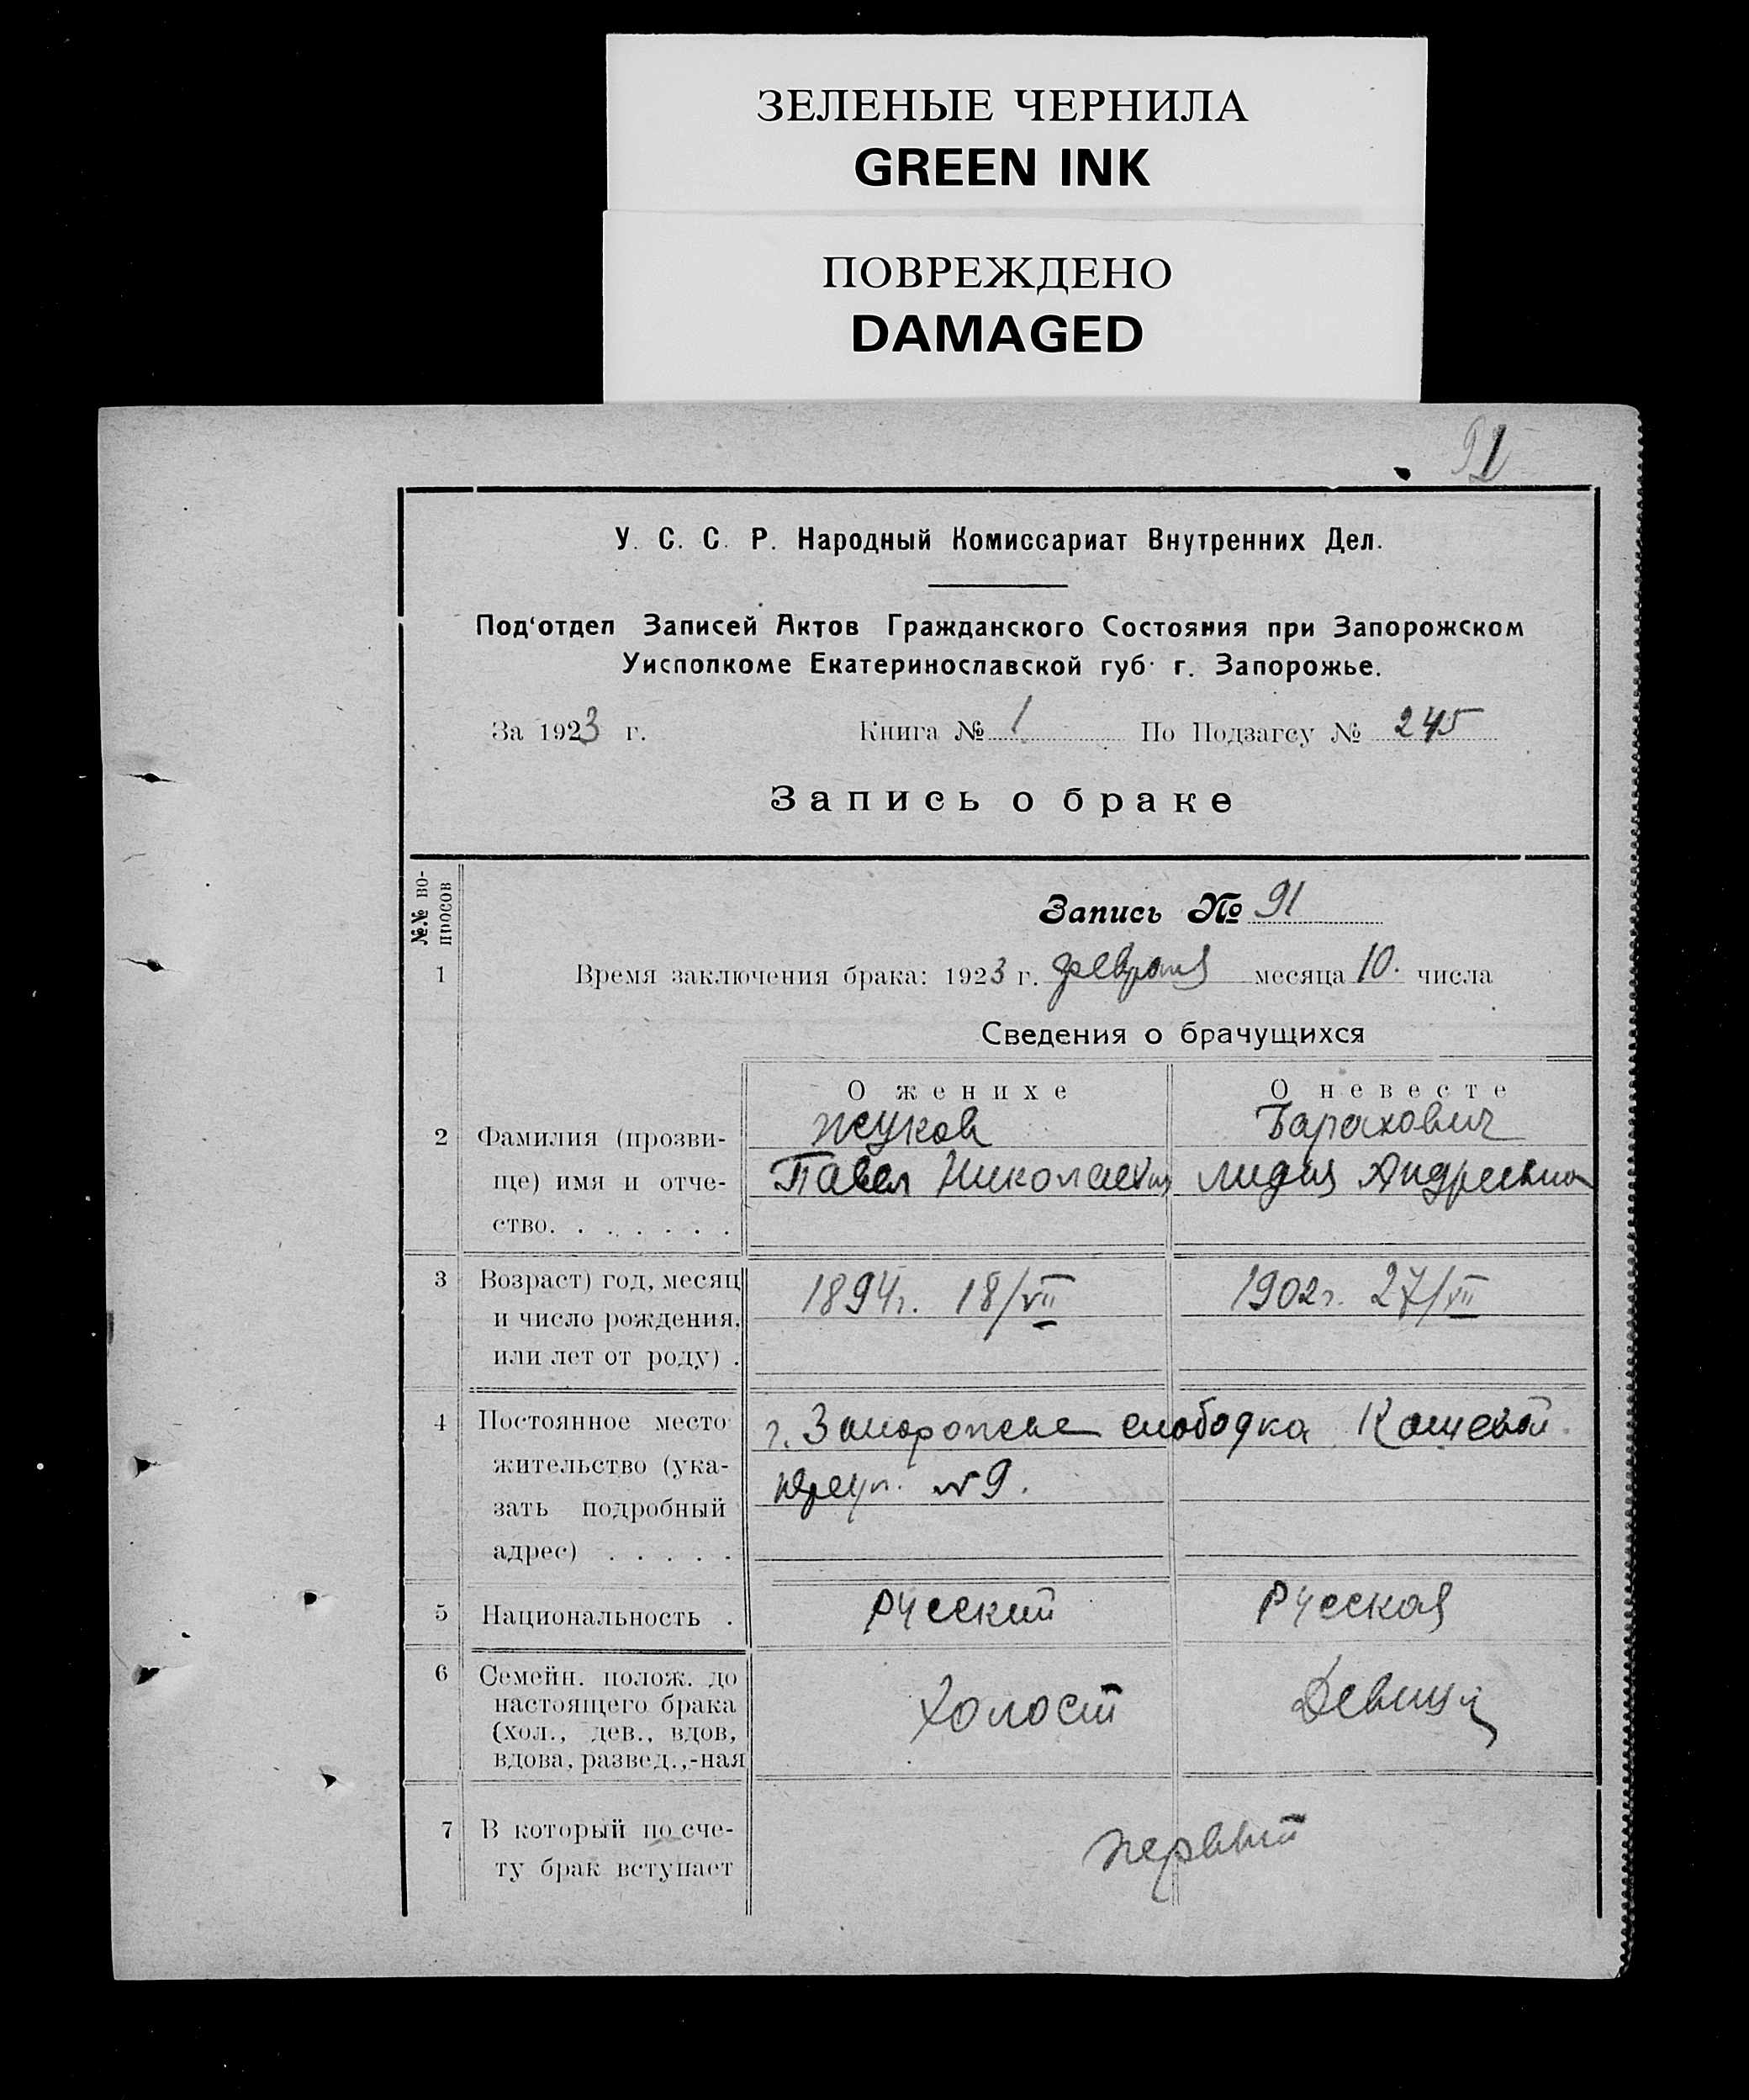 ЗЕЛЕНЫЕ ЧЕРНИЛА
GREEN INK
ПОВРЕЖДЕНО
DAMAGED
91
У. С. С. Р. Народный Комиссариат Внутренних Дел.
Под'отдел Записей Актов Гражданского Состояния при Запорожском
Уисполкоме Екатеринославской губ. г. Запорожье.
За 1923 г. Книга № 1 По Подзагсу № 245
Запись о браке
№.№ во-
просов
Запись № 91
1 Время заключения брака: 1923 г. февраля месяца 10. числа
Сведения о брачущихся
О женихе О невесте
Жуков Барахович
2 Фамилия (прозви-
Павел Николаевич Лидия Андреевна
ще) имя и отче-
ство. . . . . . .
3 Возраст) год, месяц
1894г. 18/VII 1902г. 27/VII
и число рождения,
или лет от роду) .
4 Постоянное место
г. Запорожье слободка Кошевой
жительство (ука-
переул. № 9.
зать подробный
адрес) . . . . .
5 Национальность . Русский Русская
6 Семейн. полож. до
настоящего брака
Холост Девица
(хол., дев., вдов,
вдова, развед.,-ная
7 В который по сче-
первый
ту брак вступает